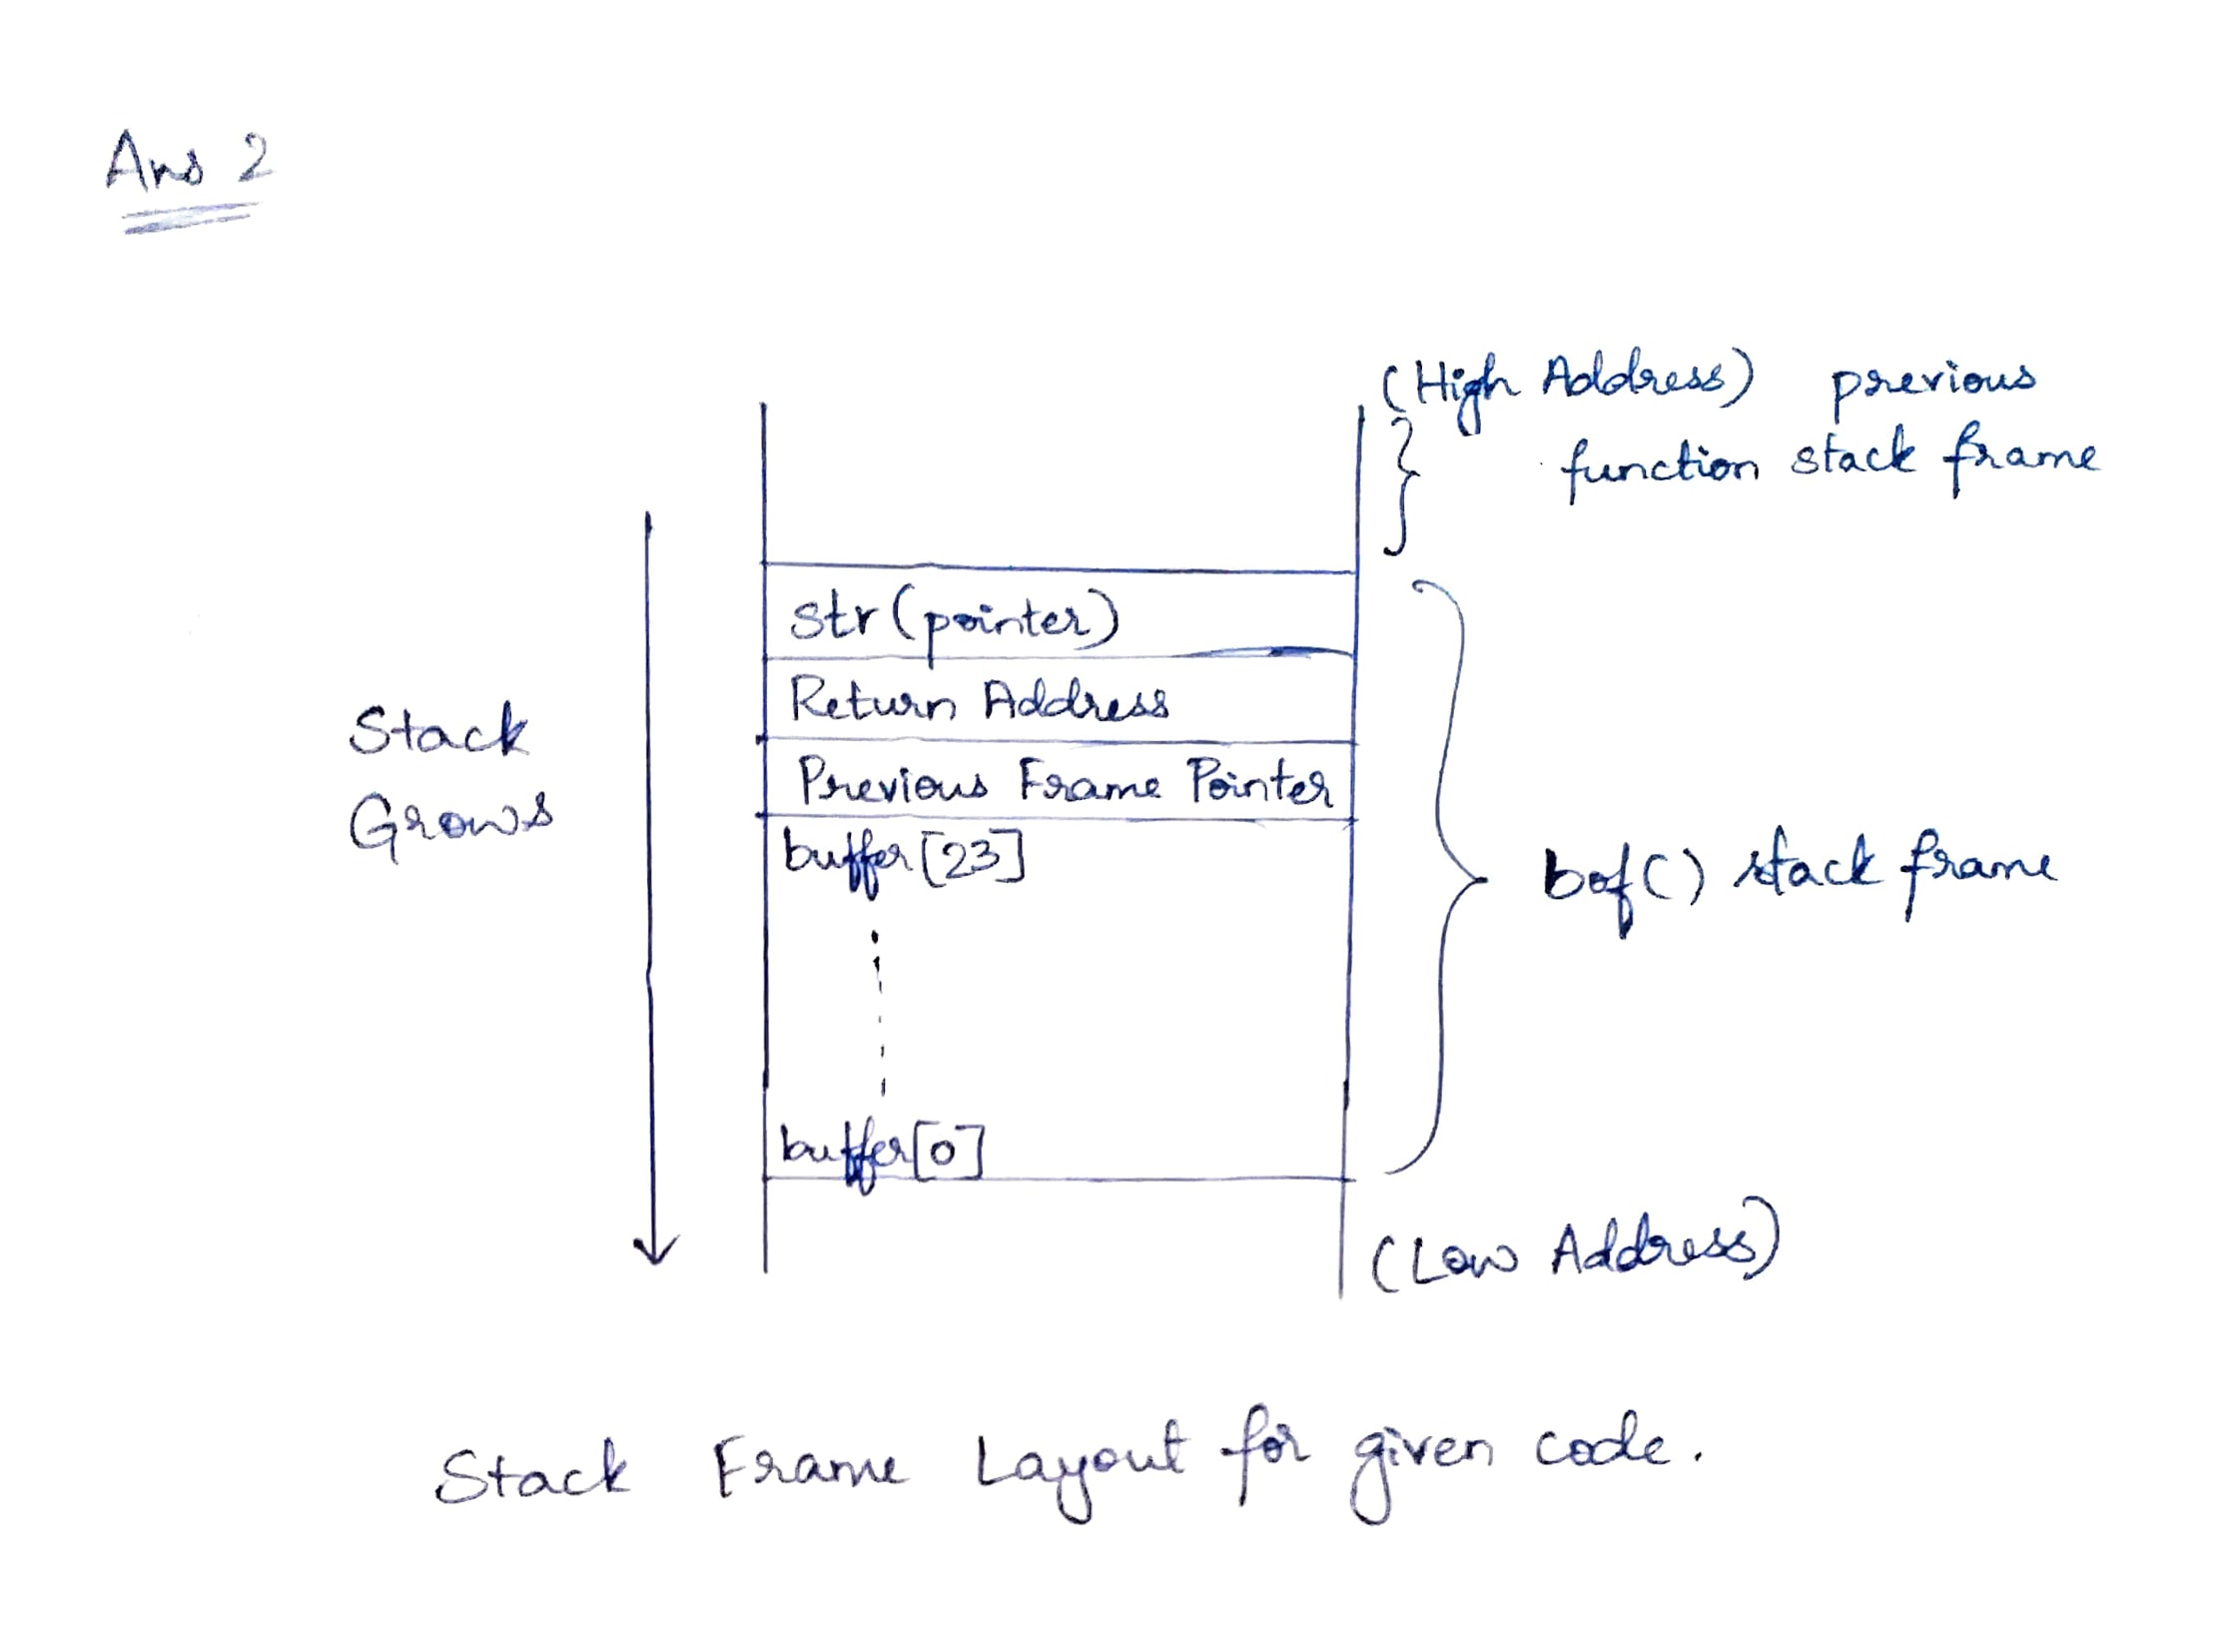 Ans 2
(High Address) previous
function stack frame
str (pointer)
Return Address
Previous Frame Pointer
buffer[23]
buffer[0]
Stack
Grows
bof() stack frame
(Low Address)
Stack Frame Layout for given code.